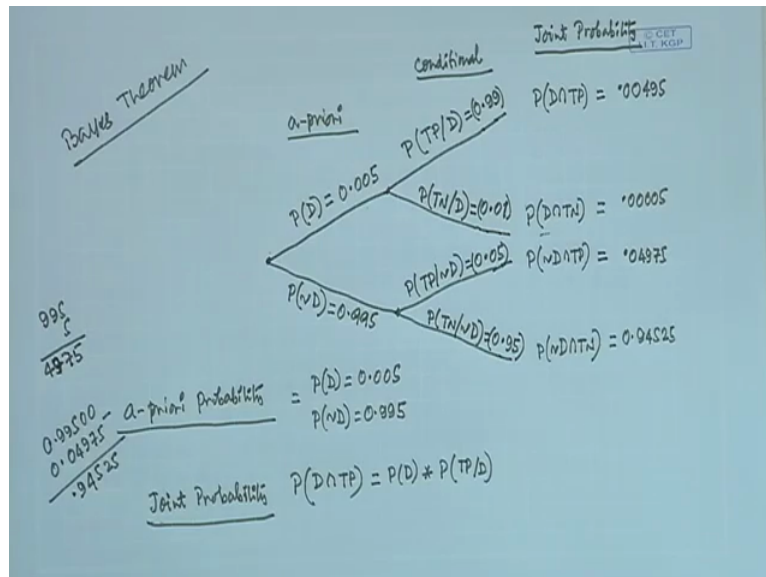 Bayes Theorem
a-priori
Conditional
Joint Probability
© CET
I.I.T. KGP
P(D) = 0.005
P(ND) = 0.995
P(TP/D)=(0.99)
P(TN/D)=(0.01)
P(TP/ND)=(0.05)
P(TN/ND)=(0.95)
P(D∩TP) = .00495
P(D∩TN) = .00005
P(ND∩TP) = .04975
P(ND∩TN) = 0.94525
995
5
4975
0.99500 -
0.04975
.94525
a-priori Probability = P(D) = 0.005
P(ND) = 0.995
Joint Probability P(D∩TP) = P(D) * P(TP/D)